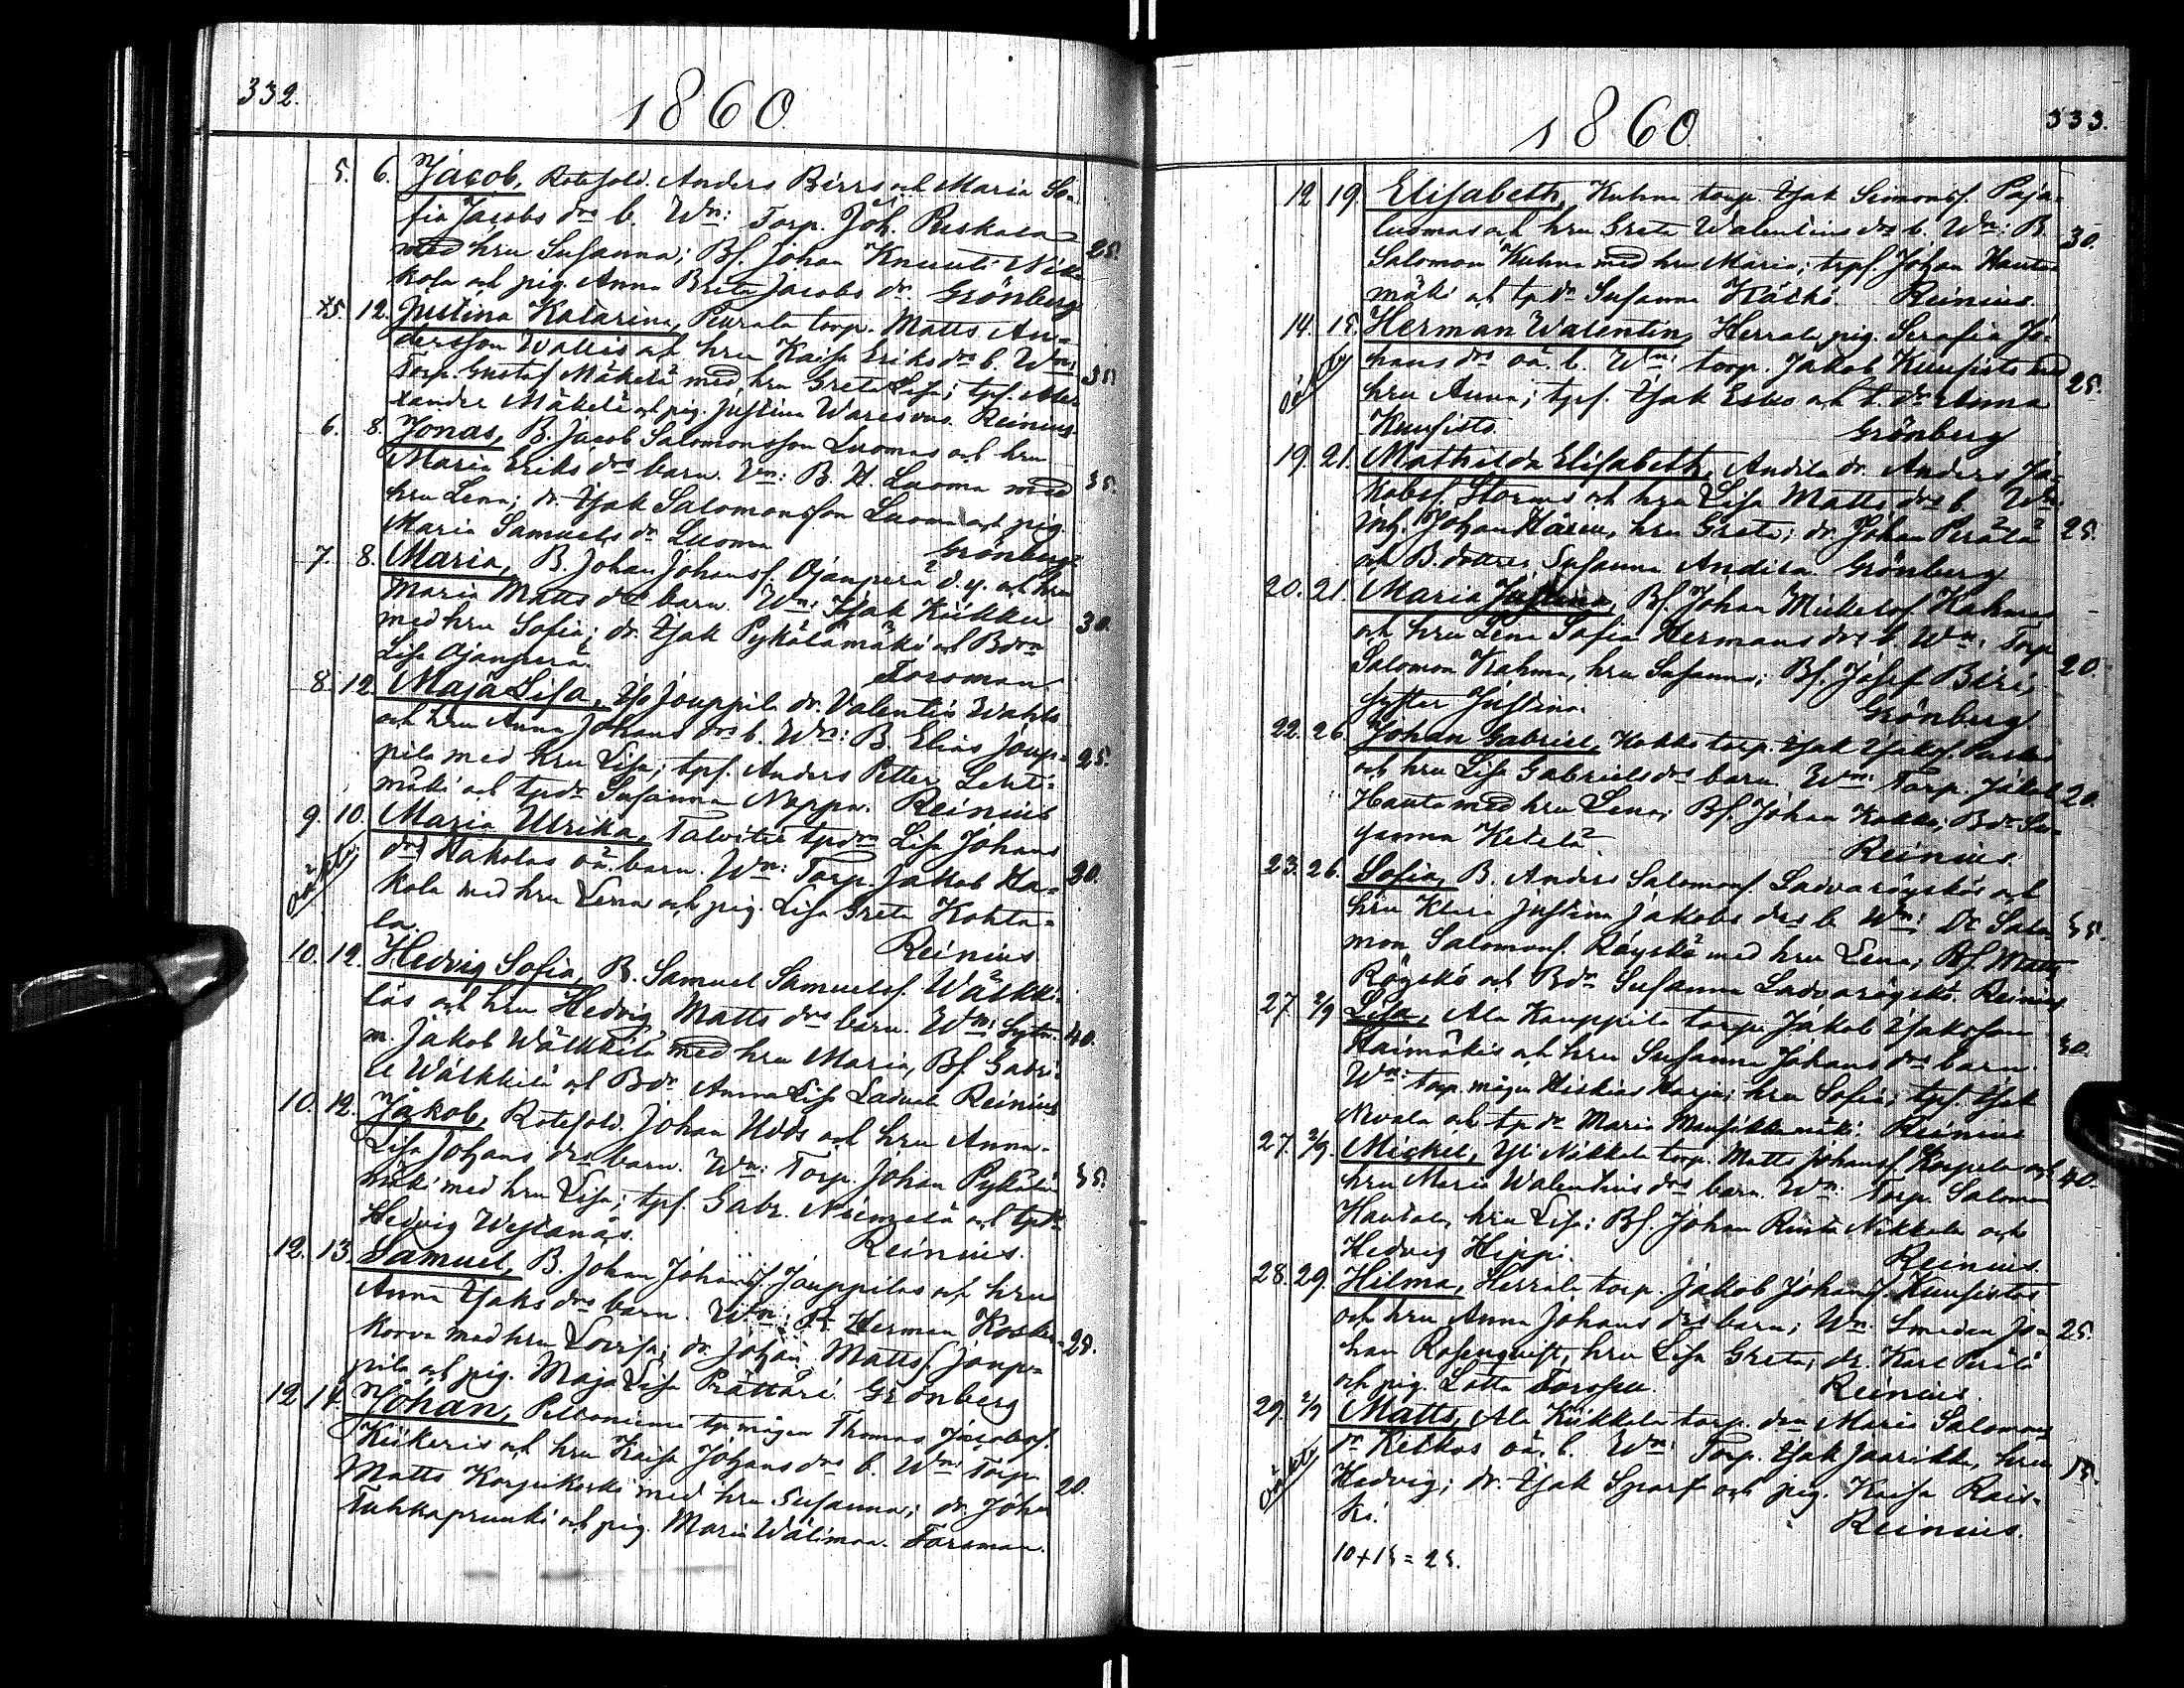 332.
1860
5. 6. Jacob, Rotesold. Anders Birrs och Maria So-
fia Jacobs drs b. Wn: Torp. Joh. Ruskala
med hru Susanna; Bs. Johan Knuuti Nik- 25.
kola och pig. Anna Brita Jacobs dr. Grönberg
5. 12. Justina Katarina, Peurala torp. Matts An-
dersson Wallis och hru Kaisa Eriks drs b. Wn:
Torp. Gustaf Mäkelä med hru Greta Lisa; tps. Alex- 35.
xander Mäkelä och pig. Justina Reinius
6. 8. Jonas, B. Jacob Salomonsson Luomas och hru
Maria Eriks drs barn. Vn: B. H. Luoma med 35.
hru Lena; dr. Isak Salomonsson Luoma och pig.
Maria Samuels dr Luoma Grönberg
7. 8. Maria, B. Johan Johanss. Ojanperä d.y. och hru
Maria Matts drs barn. Wn: Isak Kiikku 30.
med hru Sofia; dr. Isak Pykälämäki och Bdrn
Lisa Ojanperä. Forsman
8. 12. Maja Lisa, Jouppila dr. Valentin Wahls
och hru Anna Johans drs b. Wn: B. Elias Joup-
pila med hru Lisa; tps. Anders Petter Lehti- 25.
mäki och tpdr Susanna Noppa. Reinius
9. 10. Maria Ulrika, Talvitie tpdrn Lisa Johans
drs Hakolas oä. barn. Wn: Torp. Jakob Ha- 20.
kola med hru Lena och pig. Lisa Greta Kohta-
la. Reinius
10. 12. Hedvig Sofia, B. Samuel Samuelss. Wälkki-
läs och hru Hedvig Matts drs barn. Wn: 40.
m. Jakob Wälkkilä med hru Maria, Bs. Gabri-
el Wälkkilä och Bdr. Anna Lisa Ladvala Reinius
10. 12. Jakob, Rotesold. Johan Udds och hru Anna-
Lisa Johans drs barn. Wn: Torp. Johan Pykälä-
mäki med hru Lisa; tps. Gabr. Niemelä och tpdr 35.
Hedvig Reinius.
12. 13. Samuel, B. Johan Johanss. Jouppilas och hru
Anna Isaks drs barn. Wn: B. Herman Kosken-
korva med hru Lovisa; dr. Johan Mattss. Joup- 25.
pila och pig. Maja Lisa Prättäri Grönberg
12. 14. Johan, Peltoniemi tp mågen Thomas Jacobss.
Kiikeris och hru Kaisa Johans drs b. Wn: Torp.
Matts Korpikoski med hru Susanna; dr. Johan 20.
Tuhkaprunti och pig. Maria Wälimaa. Forsman.
1860
333.
12 19. Elisabeth, Kuhna torp. Isak Simonss. Paja-
luomas och hru Greta Walentins drs b. Wn: B. 30.
Salomon Kuhna med hru Maria; trps. Johan Hauta-
mäki och tp dr Susanna Reinius.
14. 15. Herman Walentin, Herrala pig. Serafia Jo-
hans drs oä. b. Wn: torp. Jakob Kuusisto med
hru Anna; tps. Isak och t. dr Anna 25.
Kuusisto. Grönberg
19. 21. Mathilda Elisabeth, Andila dr. Anders Ja-
kobss. Storms och hru Lisa Matts drs b. Wn:
Inh. Johan, hru Greta; dr. Johan Perälä 25.
och B. dottren Susanna Andila. Grönberg
20. 21. Maria Justina, Bs. Johan Mickelss. Kahmas
och hru Lena Sofia Hermans drs b. Wn: Torp.
Salomon Krahma, hru Susanna; Bs. Josef Biri, 20.
syster Justina. Grönberg
22. 26. Johan Gabriel, Kokko torp. Isak
och hru Lisa Gabriels drs barn. Wn: Torp. Jakob 20.
Hauta med hru Lena; Bs. Johan Kokko, Bdr Su-
sanna Ketelä Reinius.
23. 26. Sofia, B. Anders Salomonss. Ladvaröyskös och
hru Klara Justina Jakobs drs b. Wn: Salo- 35.
mon Salomonss. Röyskö med hru Lena; Bs. Matts
Röyskö och Bdr Susanna Ladvaröyskö. Reinius
27. 2/9 Lisa, Ala Kauppila torp. Jakob Isaksson
Haimäkis och hru Susanna Johans drs barn. 30.
Wn: torp. mågen Hiskias Harju; hru Sofia; tps. Isak
och tp dr Maria Mansikkamäki. Reinius
27. 2/9. Mickel, Yli Nikkola torp. Matts Johanss. Korpela och
hru Maria Walentins drs barn. Wn: Torp. Salomon 40.
Hautala, hru Lisa; Bs. Johan Rinta Nikkola och
Hedvig Hippi. Reinius.
28. 29. Hilma, Herrala torp. Jakob Johanss. Kuusistos
och hru Anna Johans drs barn; Wn. Smeden Jo- 25.
han Rosenqvist, hru Lisa Greta; dr. Karl Perälä
och pig. Lotta. Reinius.
29. 2/9 Matts, Ala Kiikkala torp. drn Maria Salomons
dr oä. b. Wn: Torp. Isak Jaarikka, hru
Hedvig; dr. Isak Sparf och pig. Kaisa Rais- 15.
ki. Reinius.
10+15=25.